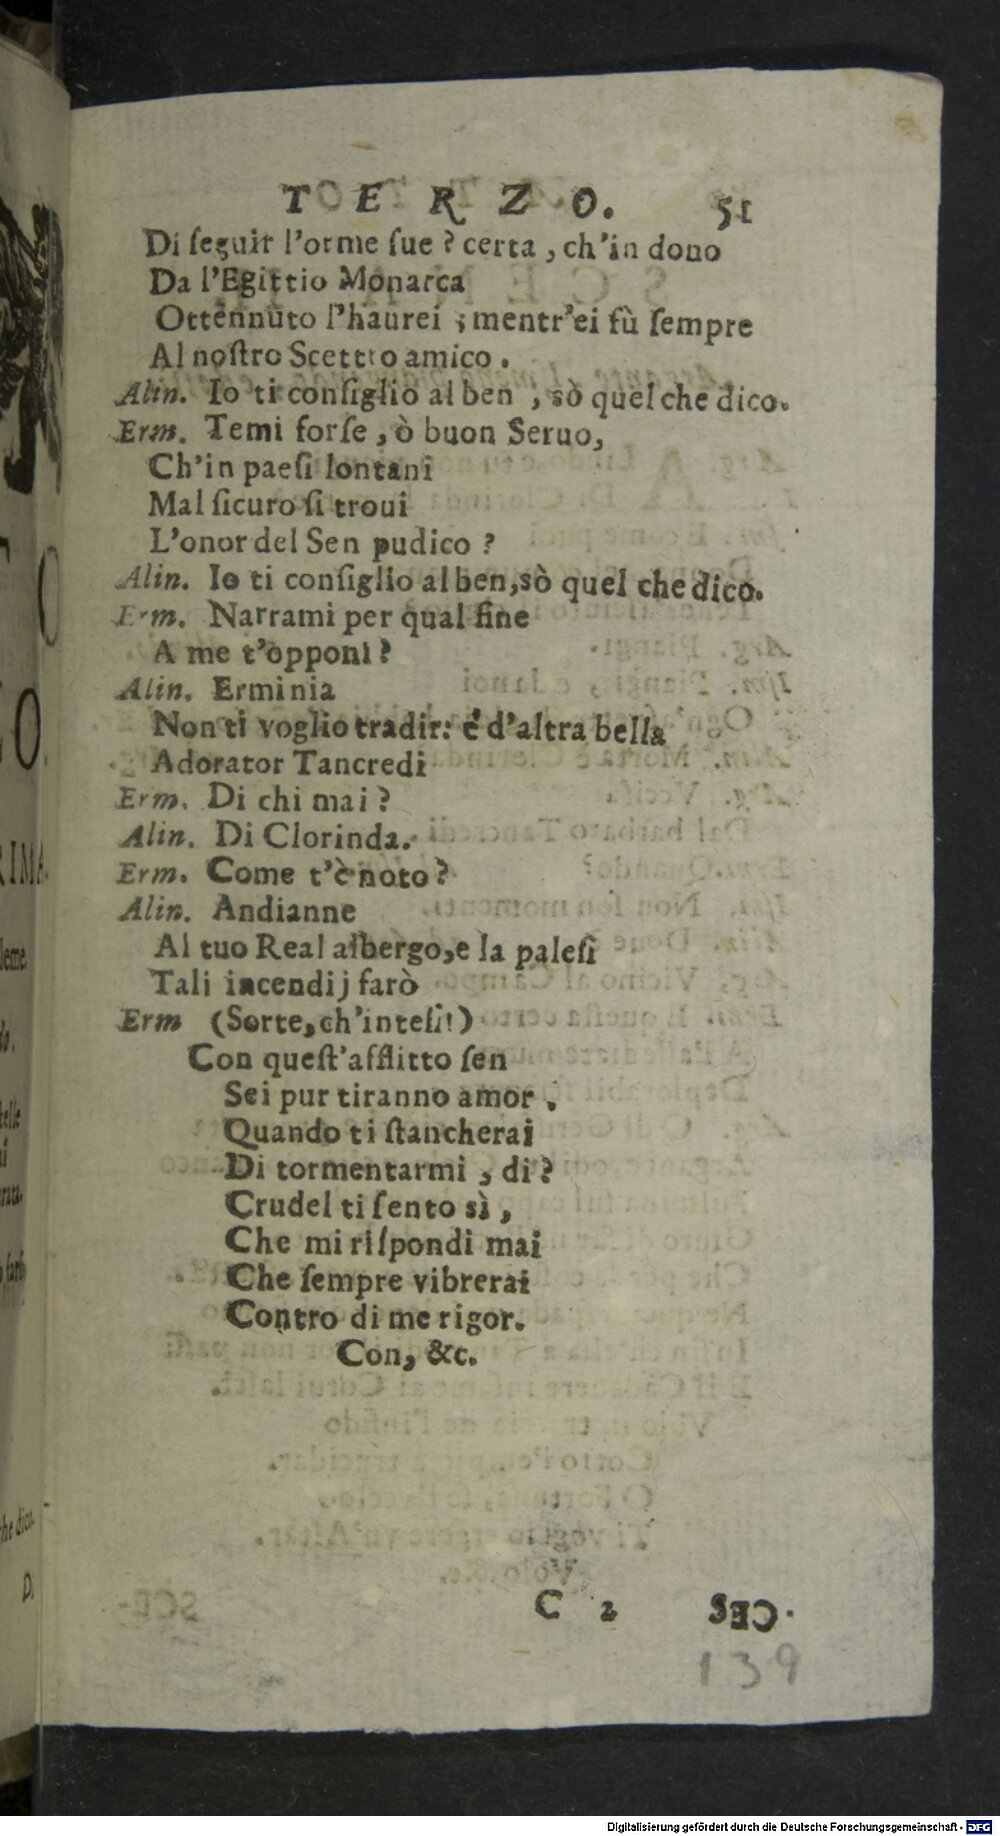 TERZO. 51
Di ſeguir l'orme ſue ? certa , ch'in dono
Da l'Egittio Monarca
Ottennuto l'haurei ; mentr'ei fù ſempre
Al noſtro Scettro amico .
Alin. Io ti conſiglio al ben , sò quel che dico.
Erm. Temi forſe , ò buon Seruo,
Ch'in paeſi lontani
Mal ſicuro ſi troui
L'onor del Sen pudico ?
Alin. Io ti conſiglio al ben,sò quel che dico.
Erm. Narrami per qual fine
A me t'opponi ?
Alin. Erminia
Non ti voglio tradir: è d'altra bella
Adorator Tancredi
Erm. Di chi mai ?
Alin. Di Clorinda.
Erm. Come t'è noto ?
Alin. Andianne
Al tuo Real albergo,e la paleſi
Tali incendij farò
Erm (Sorte,ch'inteſi!)
Con queſt'afflitto ſen
Sei pur tiranno amor .
Quando ti ſtancherai
Di tormentarmi , di ?
Crudel ti ſento sì ,
Che mi riſpondi mai
Che ſempre vibrerai
Contro di me rigor.
Con, &c.
C 2 SCE-
139
Digitalisierung gefördert durch die Deutsche Forschungsgemeinschaft - DFG